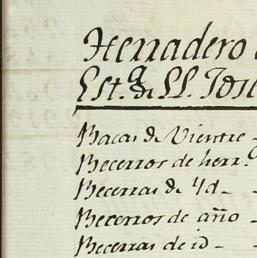 Herradero
Est.ª de Sⁿ. Tosi
Bacas de Vientre
Becerros de herr.º
Becerras de Yd
Becerros de año
Becerras de id